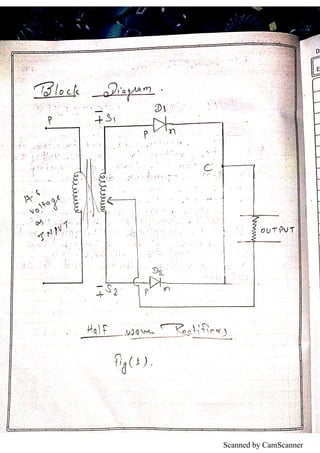 Block Diagram.
D1
P
∓ S1
P
n
C
A.C
voltage
as
INPUT
OUTPUT
D2
∓ S2
P
n
Half wave Rectifiers
Fig(1).
Scanned by CamScanner